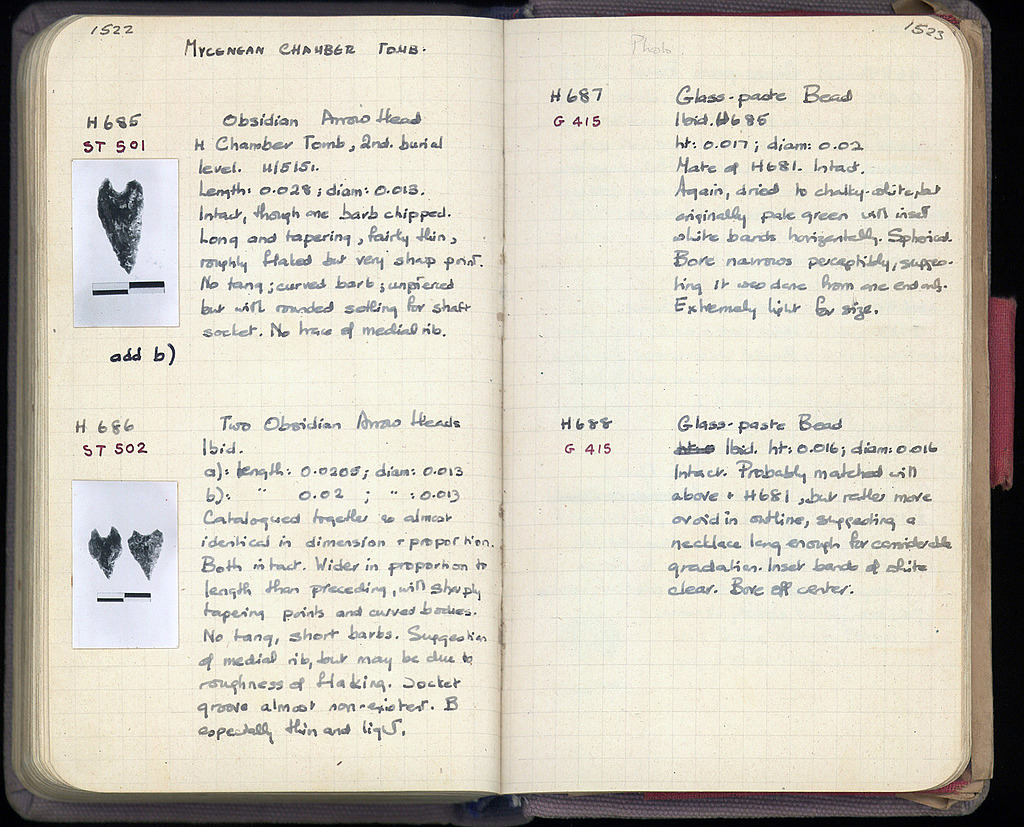 1522
MYCENEAN CHAMBER TOMB.
H 685
ST 501
Obsidian Arrow Head
H Chamber Tomb, 2nd. burial
level. 4/5/51.
Length: 0.028; diam: 0.013.
Intact, though one barb chipped.
Long and tapering, fairly thin,
roughly flaked but very sharp point.
No tang; curved barb; unpierced
but with rounded setting for shaft
socket. No trace of medial rib.
add b)
H 686
ST 502
Two Obsidian Arrow Heads
Ibid.
a): length: 0.0205; diam: 0.013
b): " 0.02 ; " : 0.013
Catalogued together as almost
identical in dimension + proportion.
Both intact. Wider in proportion to
length than preceding, with sharply
tapering points and curved bodies.
No tang, short barbs. Suggestion
of medial rib, but may be due to
roughness of flaking. Socket
groove almost non-existent. B
especially thin and light.
1523
Photo
H 687
G 415
Glass-paste Bead
Ibid. H 685
ht: 0.017; diam: 0.02
Mate of H681. Intact.
Again, dried to chalky-white, but
originally pale green with inset
white bands horizontally. Spherical.
Bore narrows perceptibly, sugges-
ting it was done from one end only.
Extremely light for size.
H 688
G 415
Glass-paste Bead
Ibid. ht: 0.016; diam: 0.016
Intact. Probably matched with
above + H681, but rather more
ovoid in outline, suggesting a
necklace long enough for considerable
gradation. Inset bands of white
clear. Bore off center.